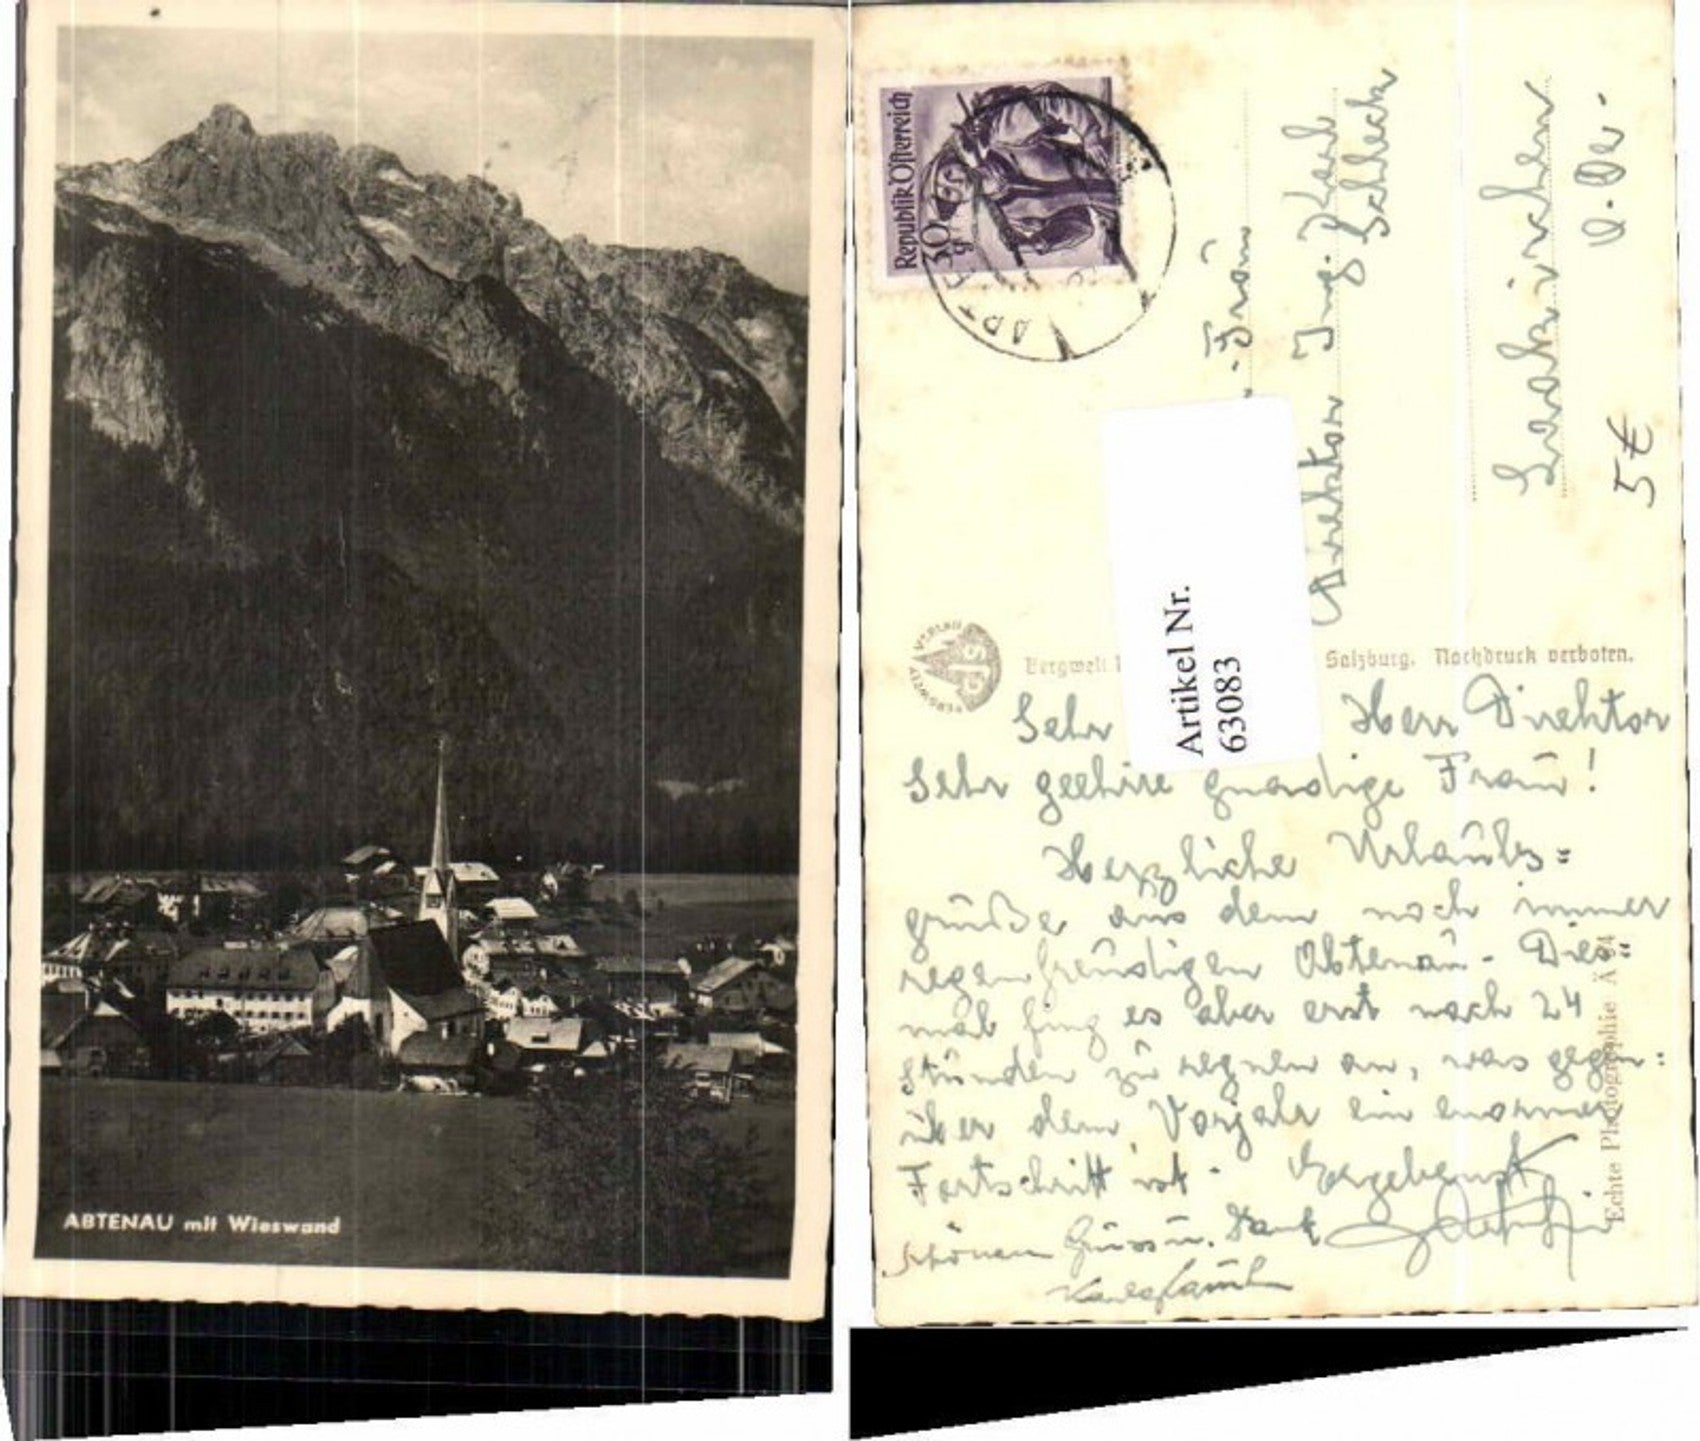 ABTENAU mit Wieswand
Republik Österreich
30 g
ABT
Frau
Direktor Ing. Karl
Schleck
Laakirchen
O.Öe.
5€
Artikel Nr.
63083
BERGWELT VERLAG
Bergwelt Salzburg. Nachdruck verboten.
Sehr Herr Direktor
Sehr geehrte gnädige Frau!
Herzliche Urlaubs=
grüße aus dem noch immer
regenfreudigen Abtenau. Dies=
mal fing es aber erst nach 24
Stunden zu regnen an, was gegen=
über dem Vorjahr ein enormer
Fortschritt ist. Ergebenst
schönen Gruss u. Dank
Echte Photographie